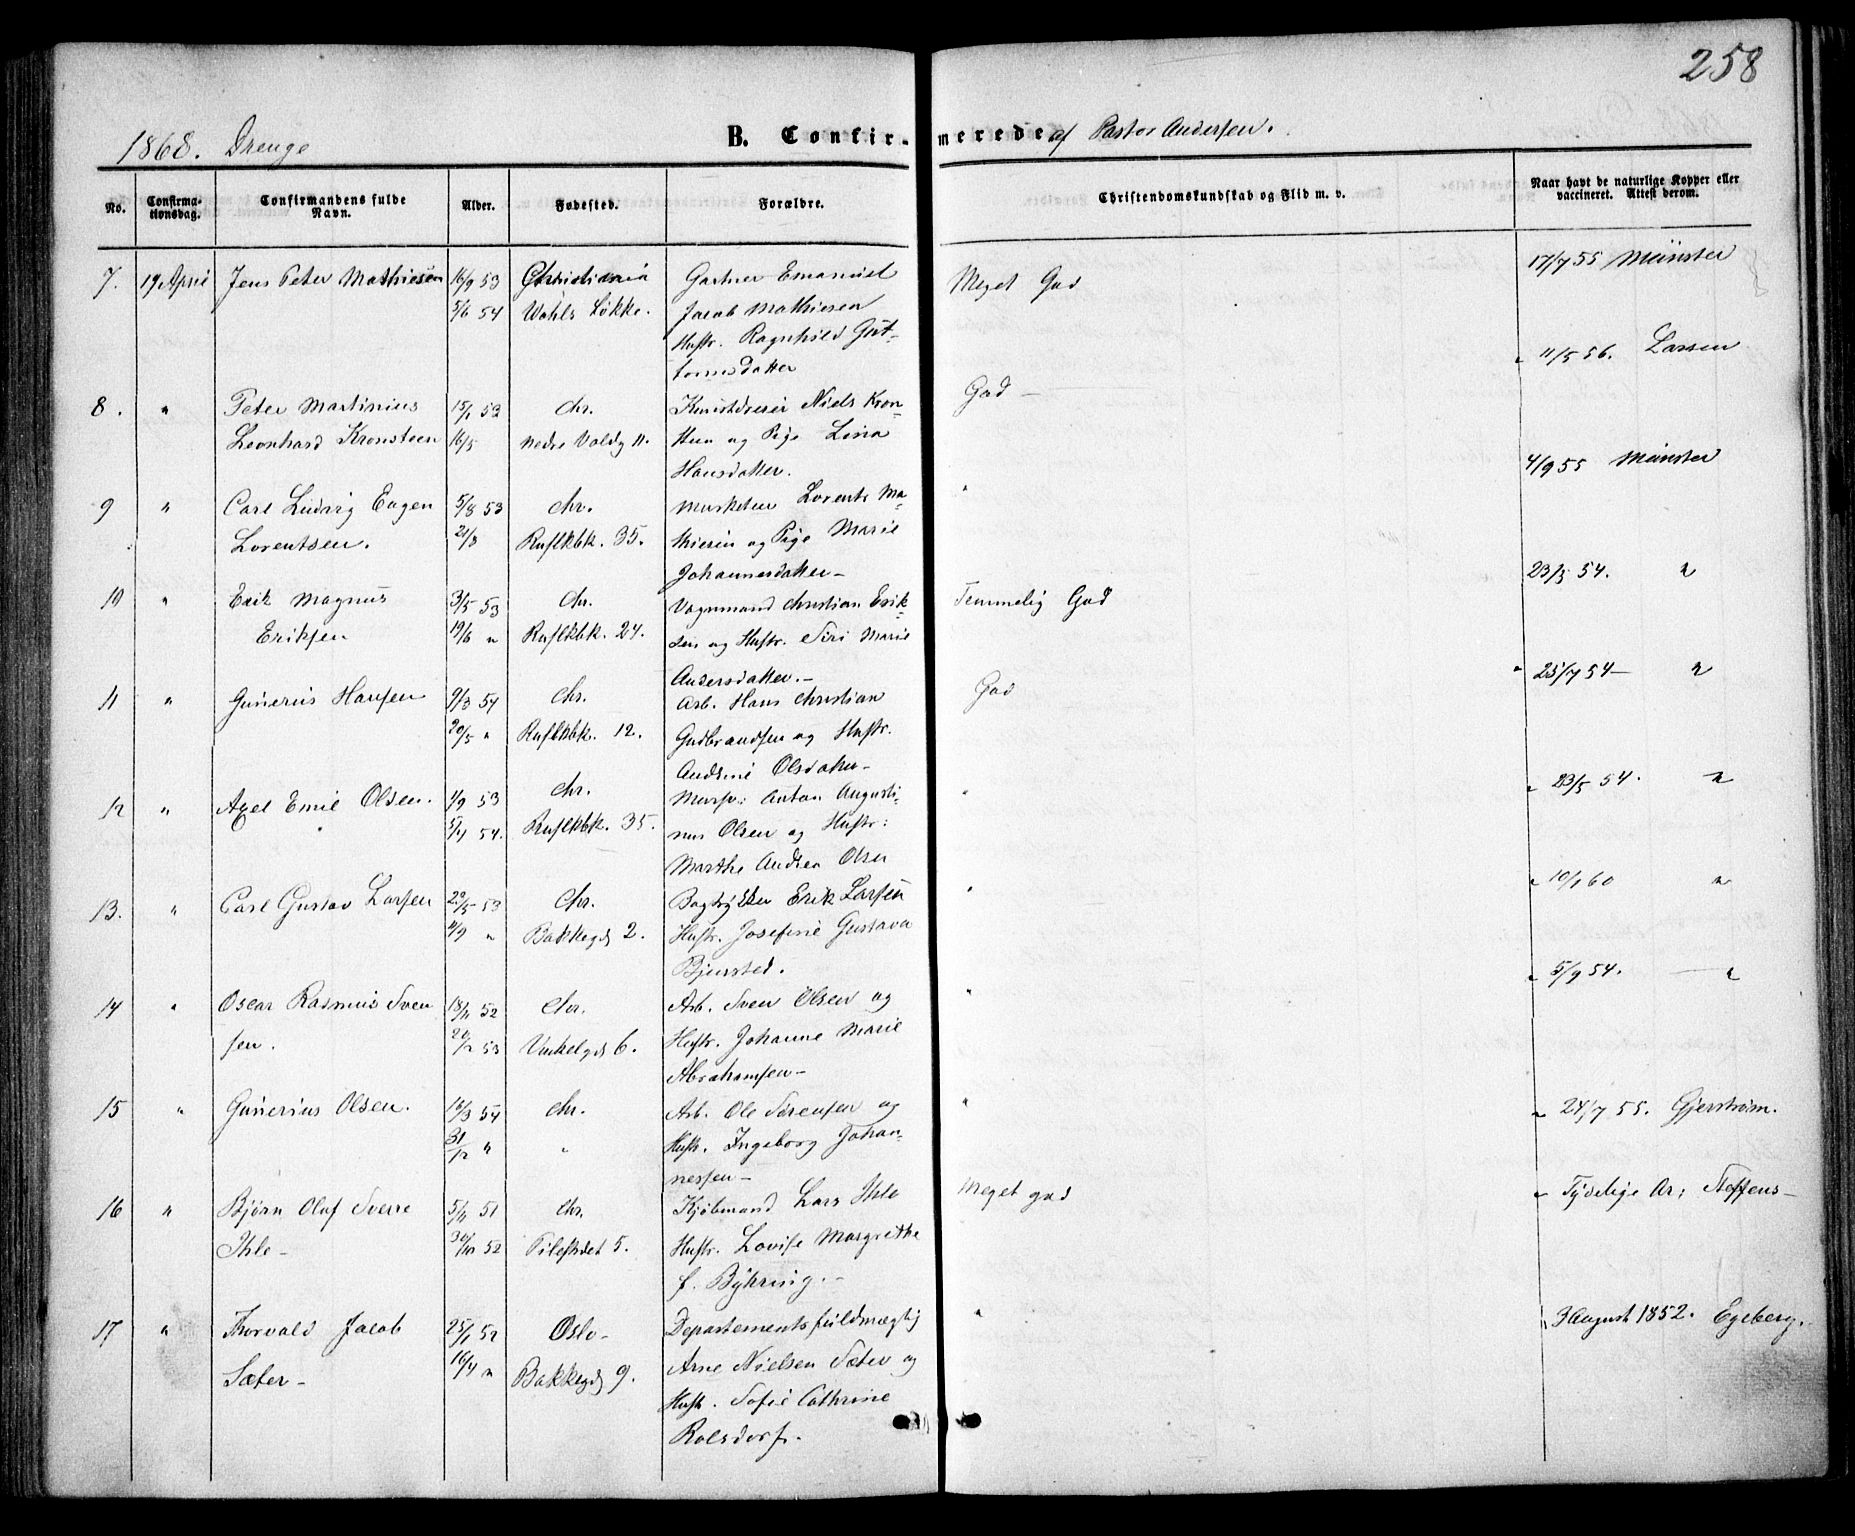 258
1868. Drenge B. Confirmerede af Pastor Andersen.
No. Confirmationsdag. Confirmandens fulde Navn. Alder. Fødested. Forældre. Christendomskundskab og Flid m. v. Naar havt de naturlige Kopper eller vaccineret. Attest derom.
7. 19 April Jens Peter Mathiesen 16/9 53 Christiania Gartner Emanuel Meget God 17/7 55 Münster
5/6 54 Wahls Løkke. Jacob Mathiesen
Hustr. Ragnhild Gut-
tormsdatter
8. " Peter Martinius 15/1 53 Chr. Kunstdreier Niels Kron- God — " 11/5 56. Larsen
Leonhard Kronsteen 16/5 nedre Voldg 11. steen og Pige Lina
Hansdatter.
9 " Carl Ludvig Eugen 5/8 53 Chr. Musketeer Lorents Ma- " 4/9 55 Münster
Lorentsen. 21/8 Ruflkbk. 35. thiesen og Pige Marie
Johannesdatter —
10 " Erik Magnus 3/5 53 Chr. Vognmand Christian Erik- Temmelig God 23/5 54. "
Eriksen 19/6 " Ruflkbk. 24. sen og Hustr. Siri Marie
Andersdatter. —
11 " Gunerius Hansen 9/3 54 Chr. Arb. Hans Christian God " 25/7 54 — "
20/5 " Ruflkbk. 12. Gudbrandsen og Hustr.
Andrine Olsdatter —
12 " Axel Emil Olsen. 4/9 53 Chr. Anton Augusti- " " 23/5 54. "
5/4 54. Ruflkbk. 35. nus Olsen og Hustr:
Marthe Andrea Olsen
13. " Carl Gustav Larsen 23/5 53 Chr. Bogtrykker Erik Larsen " " 10/1 60 "
4/9 " Bakkegd 2. Hustr. Josefine Gustava
Bjursted.
14 " Oscar Rasmus Sven 18/11 52 Chr. Arb. Sven Olsen og " " 5/9 54. — "
sen. 20/2 53 Vinkelgd 6. Hustr. Johanne Marie
Abrahamsen —
15 " Gunerius Olsen. 16/3 54 Chr. Arb. Ole Sørensen og " " 24/7 55. Gjerstrøm.
31/12 " " Hustr. Ingeborg Johan-
nessen —
16 " Bjørn Olaf Sverre 5/11 51 Chr. Kjøbmand Lars Ihle Meget god " Tydelige Ar; Steffens —
Ihle — 30/10 52 Pilestrædet 5. Hustr. Lovise Margrethe
f. Byhring. —
17 " Thorvald Jacob 25/1 52 Oslo — Departementsfuldmægtig " " 3 August 1852. Egeberg.
Sæter — 16/4 " Bakkegd 9. Arne Nielsen Sæter og
Hustr. Sofie Cathrine
Rolsdorf.